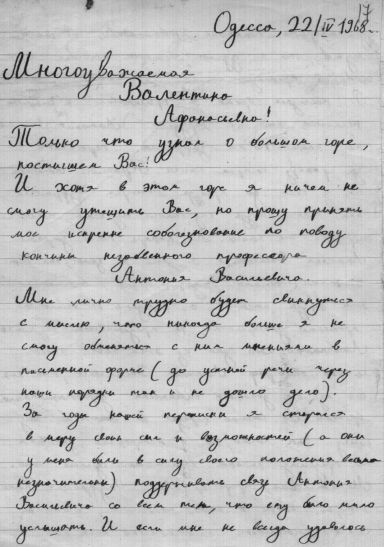 17
Одесса, 22/IV 1968 г.
Многоуважаемая
Валентина
Афанасьевна!
Только что узнал о большом горе,
постигшем Вас!
И хотя в этом горе я ничем не
смогу утешить Вас, но прошу принять
мое искренне соболезнование по поводу
кончины незабвенного профессора
Антония Васильевича.
Мне лично трудно будет свыкнуться
с мыслью, что никогда больше я не
смогу обменяться с ним мнениями в
письменной форме (до устной речи через
наши порядки так и не дошло дело).
За годы нашей переписки я старался
в меру своих сил и возможностей (а они
у меня были в силу своего положения весьма
незначительны) поддерживать связь Антония
Васильевича со всем тем, что ему было мило
услышать. И если мне не всегда удавалось